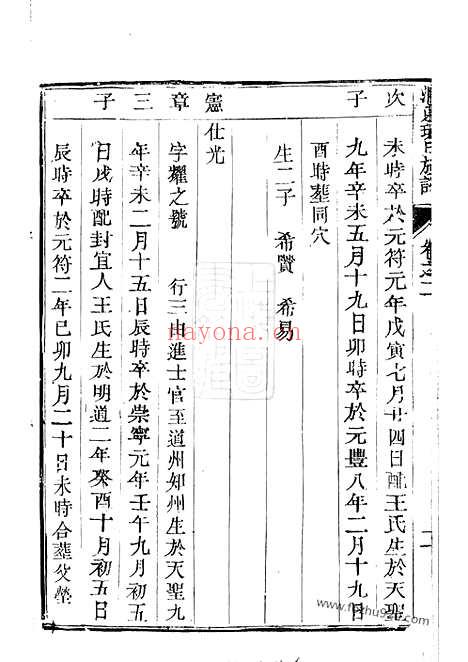 次 未時卒於元符元年戊寅七月廿四日配王氏生於天聖
九年辛未五月十九日卯時卒於元豐八年二月十九日
子 酉時葬同穴
生二子 希賢 希易
憲 仕光
章 字耀之號 行三由進士官至道州知州生於天聖九
三 年辛未二月十五日辰時卒於崇寧元年壬午九月初五
子 日戌時配封宜人王氏生於明道二年癸酉十月初五日
辰時卒於元符二年己卯九月二十日未時合葬父塋
nayona.cn
www.fozhu920.com